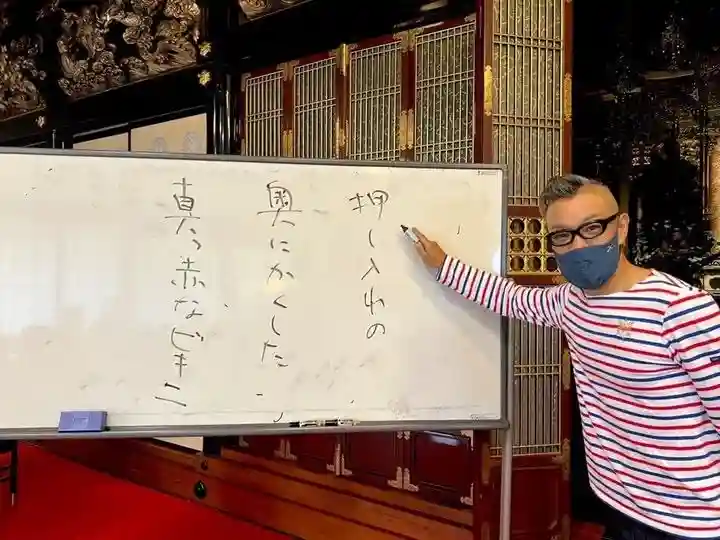 押し入れの
奥にかくした
真っ赤なビキニ